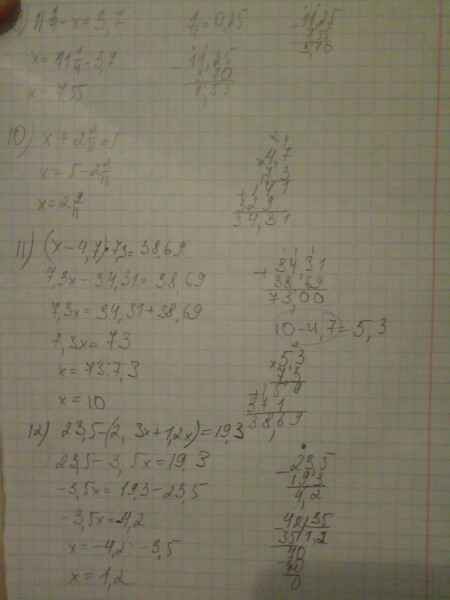 11 1/4 - x = 3,7
x = 11 1/4 - 3,7
x = 7,55
1/4 = 0,25
10) x + 2 2/11 = 5
x = 5 - 2 2/11
x = 2 9/11
4,7
7,3
1 4 1
3 2 9
34,31
11) (x - 4,7) · 7,3 = 38,69
7,3x - 34,31 = 38,69
7,3x = 34,31 + 38,69
7,3x = 73
x = 73 : 7,3
x = 10
+ 34,31
38,69
73,00
10 - 4,7 = 5,3
× 5,3
7,3
1 5 9
3 7 1
38 69
12) 23,5 - (2,3x + 1,2x) = 19,3
23,5 - 3,5x = 19,3
-3,5x = 19,3 - 23,5
-3,5x = -4,2
x = -4,2 : -3,5
x = 1,2
- 23,5
19,3
4,2
- 42 | 35
35 | 1,2
70
70
0